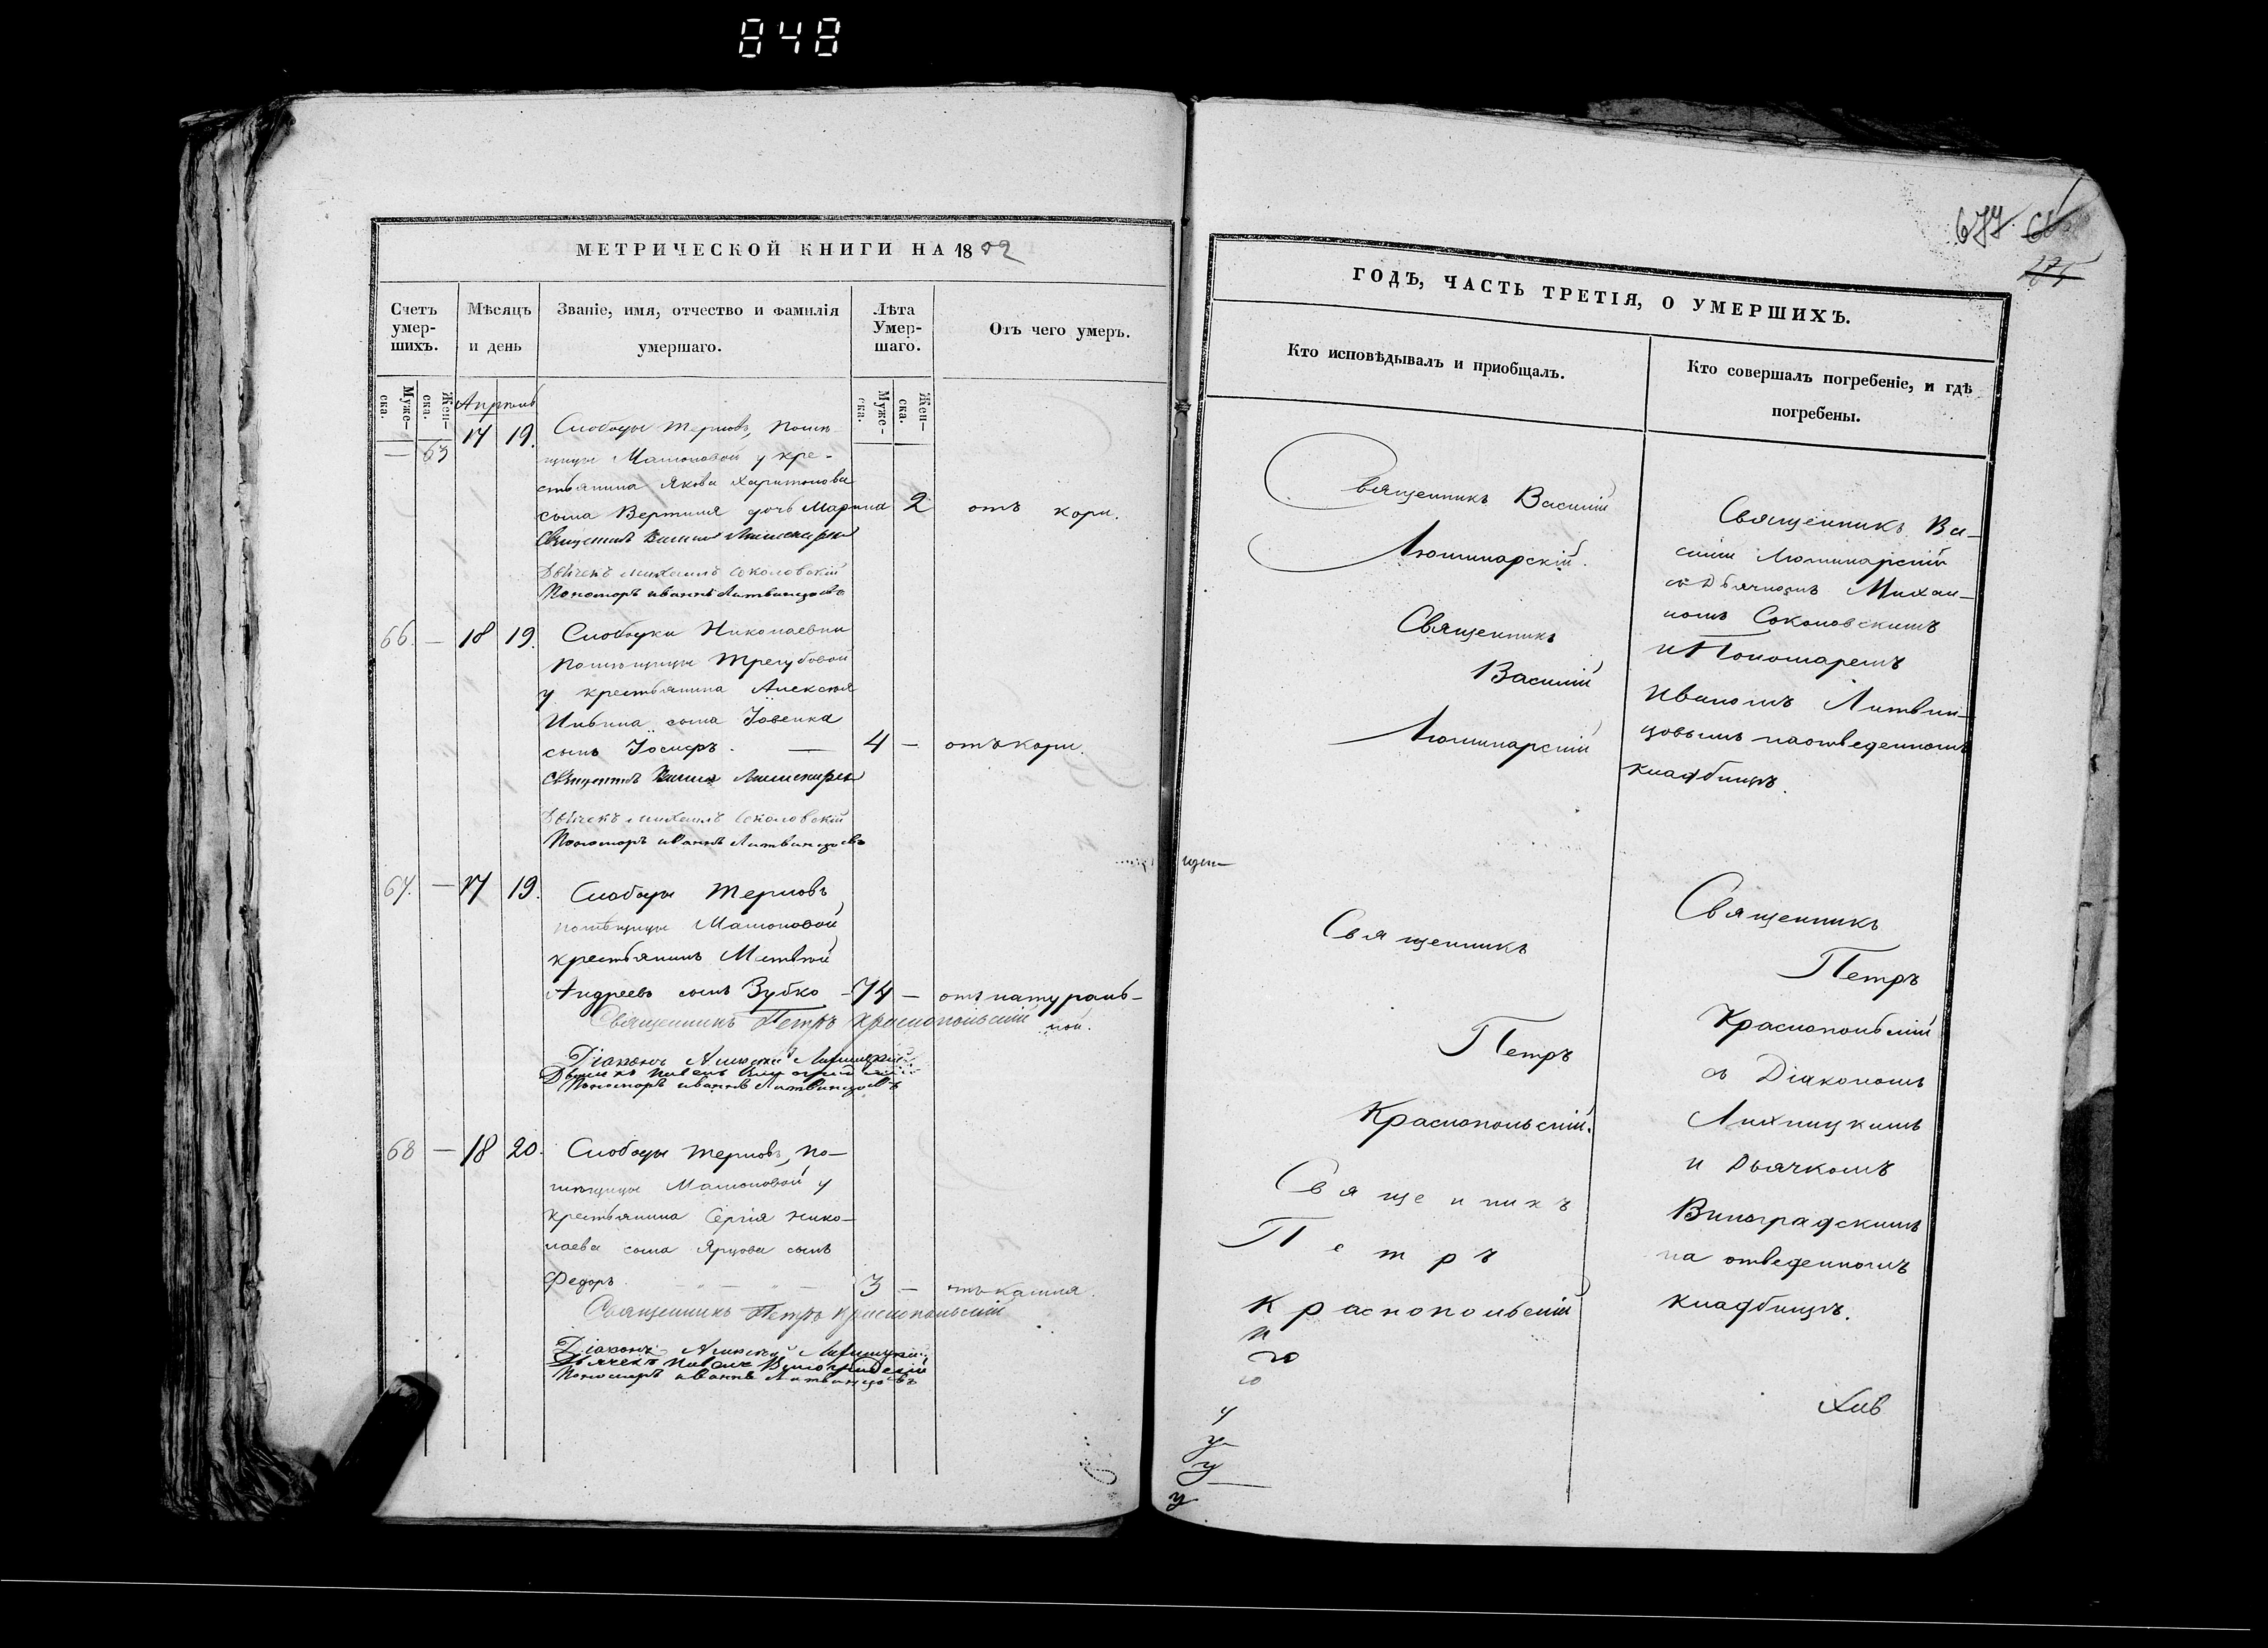 848
МЕТРИЧЕСКОЙ КНИГИ НА 18
Счетъ умер-шихъ.
Мѣсяцъ и день
Званіе, имя, отчество и фамилія умершаго.
Лѣта Умер-шаго.
Отъ чего умеръ.
Муже-ска.
Жен-ска.
Муже-ска.
Жен-ска.
Апрѣль
— 63 17 19. Слободы Терновъ, помѣ-
щицы Мамоновой у кре-
стьянина Якова Харитонова
сына Вертиля дочь Марина 2 отъ кори.
Дьячекъ Михаилъ Соколовскій
Пономарь Иванъ Литвинцовъ
66. — 18 19. Слободки Николаевки
помѣщицы Трегубовой
у крестьянина Алексѣя
Ильина сына Іовенка
сынъ Іосифъ. — 4 — отъ кори.
Дьячекъ Михаилъ Соколовскій
Пономарь Иванъ Литвинцовъ
67. — 17 19. Слободы Терновъ
помѣщицы Мамоновой
крестьянинъ Матвѣй
Андреевъ сынъ Зубко — 74 — отъ натураль-
ной.
Священникъ Петръ Краснопольскій
Діаконъ Алексѣй Лихницкій
Пономарь Иванъ Литвинцовъ
68 — 18 20. Слободы Терновъ, по-
мѣщицы Мамоновой у
крестьянина Сергія Нико-
лаева сына Ярцова сынъ
Федоръ 3 — отъ кашля.
Священникъ Петръ Краснопольскій
Діаконъ Алексѣй Лихницкій
Дьячекъ Виноградскій
Пономарь Иванъ Литвинцовъ
677
ГОДЪ, ЧАСТЬ ТРЕТІЯ, О УМЕРШИХЪ.
Кто исповѣдывалъ и приобщалъ.
Кто совершалъ погребеніе, и гдѣ погребены.
Священникъ Василій
Люминарскій.
Священникъ
Василій
Люминарскій
Священникъ
Петръ
Краснопольскій.
Священникъ
Петръ
Краснопольскій
Священникъ Ва-
силій Люминарскій
съ Дьячкомъ Михаи-
ломъ Соколовскимъ
и Пономаремъ
Иваномъ Литвин-
цовымъ на отведенномъ
кладбищѣ.
Священникъ
Петръ
Краснопольскій
съ Діакономъ
Лихницкимъ
и Дьячкомъ
Виноградскимъ
на отведенномъ
кладбищѣ.